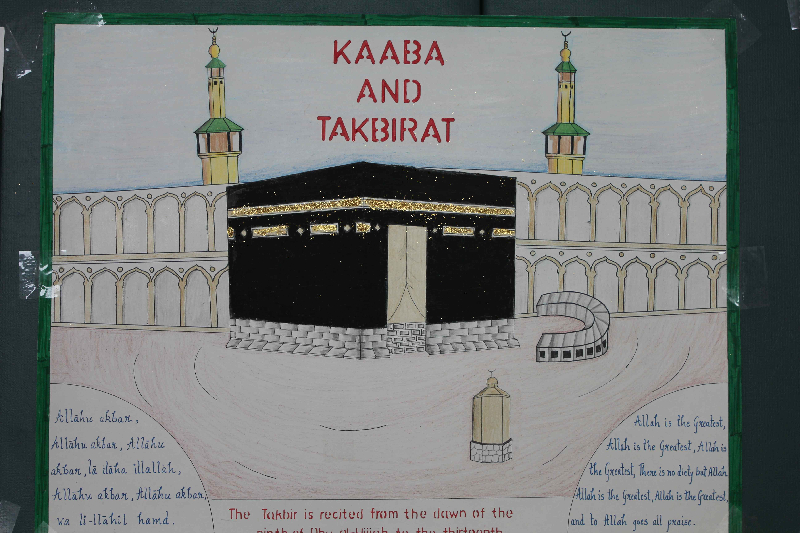 KAABA
AND
TAKBIRAT
Allāhu akbar,
Allāhu akbar, Allāhu
akbar, lā ilāha illallāh,
Allāhu akbar, Allāhu akbar,
wa li-llāhil hamd.
Allah is the Greatest,
Allah is the Greatest, Allah is
the Greatest, There is no diety but Allah
Allah is the Greatest, Allah is the Greatest,
and to Allah goes all praise.
The Takbir is recited from the dawn of the
ninth of Dhu al-Hijjah to the thirteenth